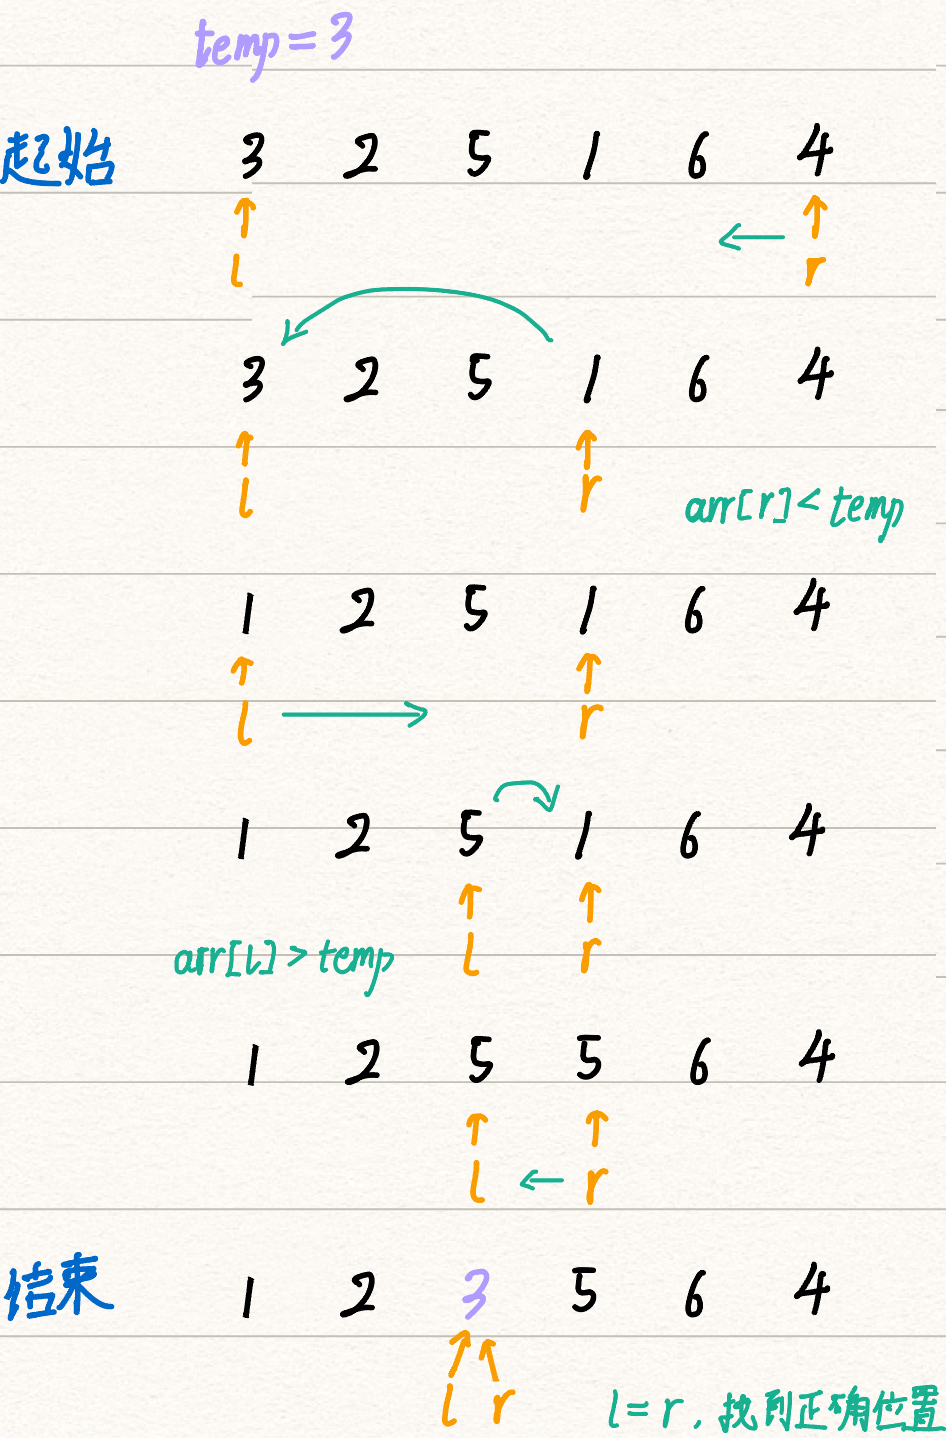 temp = 3
起始 3 2 5 1 6 4
l r
3 2 5 1 6 4
l r
arr[r] < temp
1 2 5 1 6 4
l r
1 2 5 1 6 4
l r
arr[l] > temp
1 2 5 5 6 4
l r
结束 1 2 3 5 6 4
l r
l = r, 找到正确位置